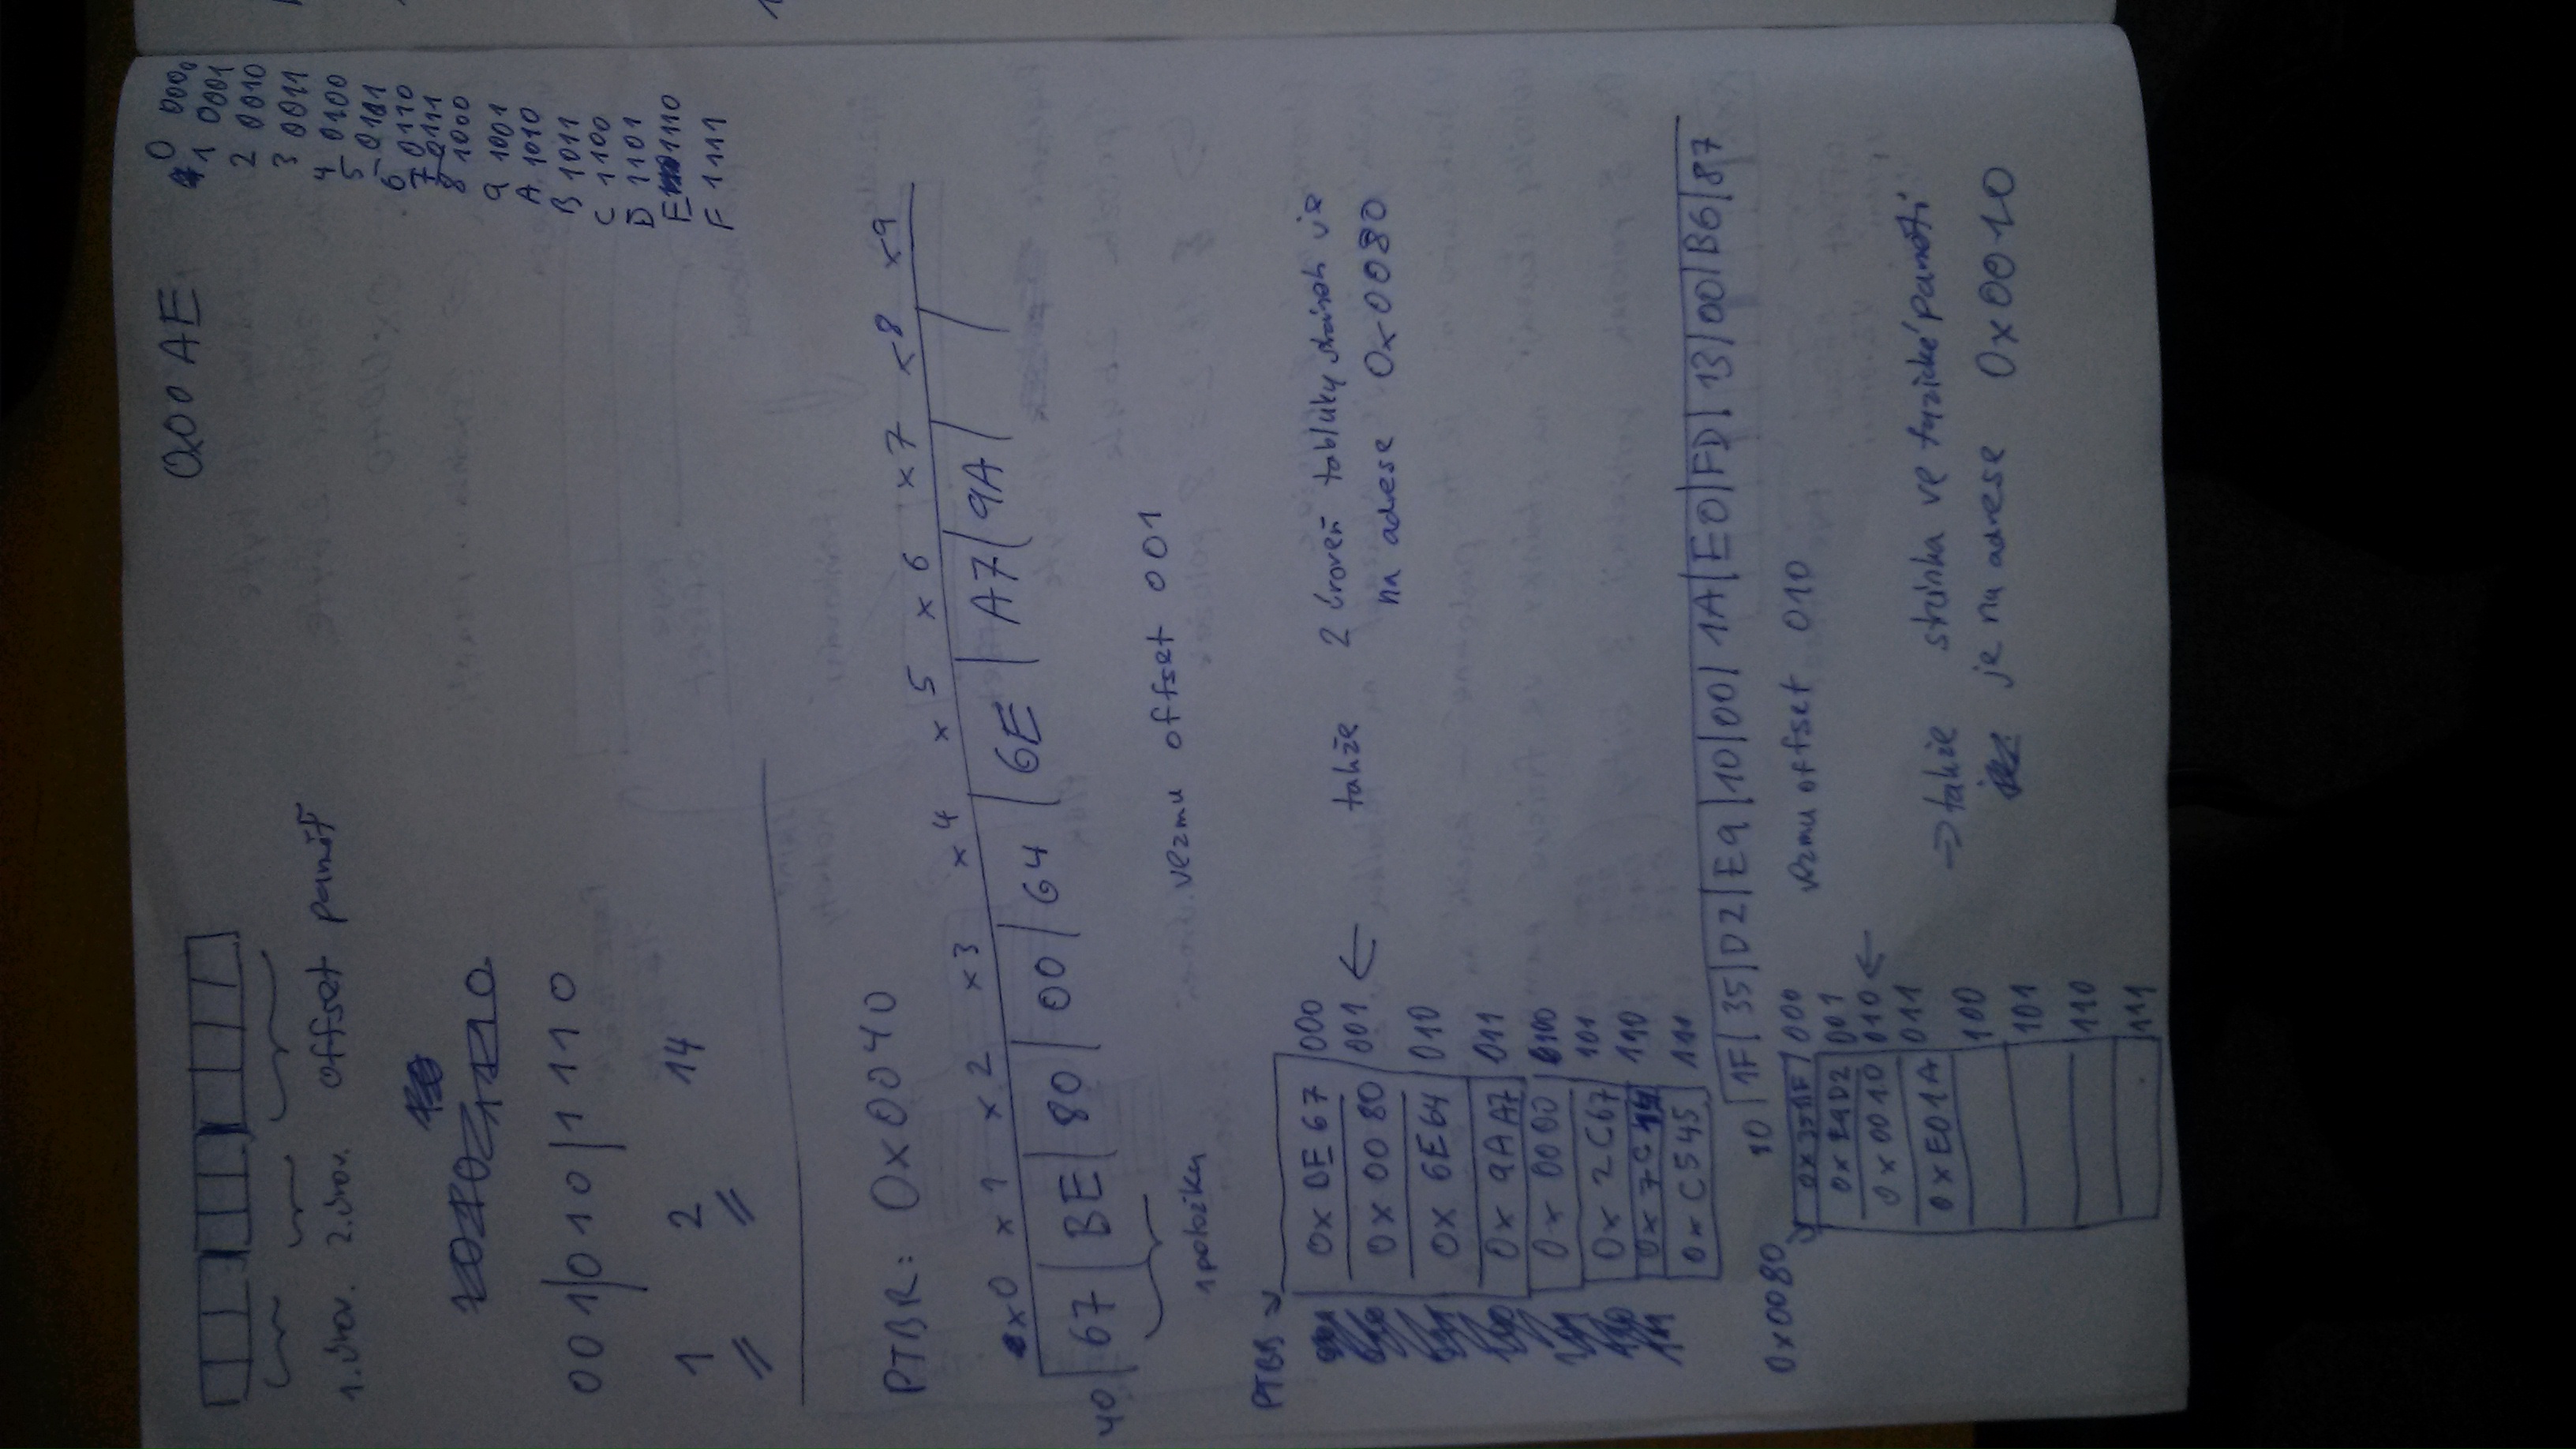 0x00AE
0 0000
1 0001
2 0010
3 0011
4 0100
5 0101
6 0110
7 0111
8 1000
9 1001
A 1010
B 1011
C 1100
D 1101
E 1110
F 1111
1. úrov. 2. úrov. offset paměť
001|010|1110
1 2 14
PTBR: 0x0040
x0 x1 x2 x3 x4 x5 x6 x7 x8 x9
40 | 67 | BE | 80 | 00 | 64 | 6E | A7 | 9A |
1 položka
vezmu offset 001
PTBR
0xBE67 000
0x0080 001 ←
0x6E64 010
0x9AA7 011
0x0000 100
0x2C67 101
0x7C 110
0xC545 111
takže 2 úroveň tabluky stránek je
na adrese 0x0080
10 | 1F | 35 | D2 | E9 | 10 | 00 | 1A | E0 | FD | 13 | 00 | B6 | 87
0x0080
0x351F 000
0xE9D2 001
0x0010 010 ←
0xE01A 011
100
101
110
111
vezmu offset 010
⇒ takže stránka ve fyzické paměti
je na adrese 0x0010